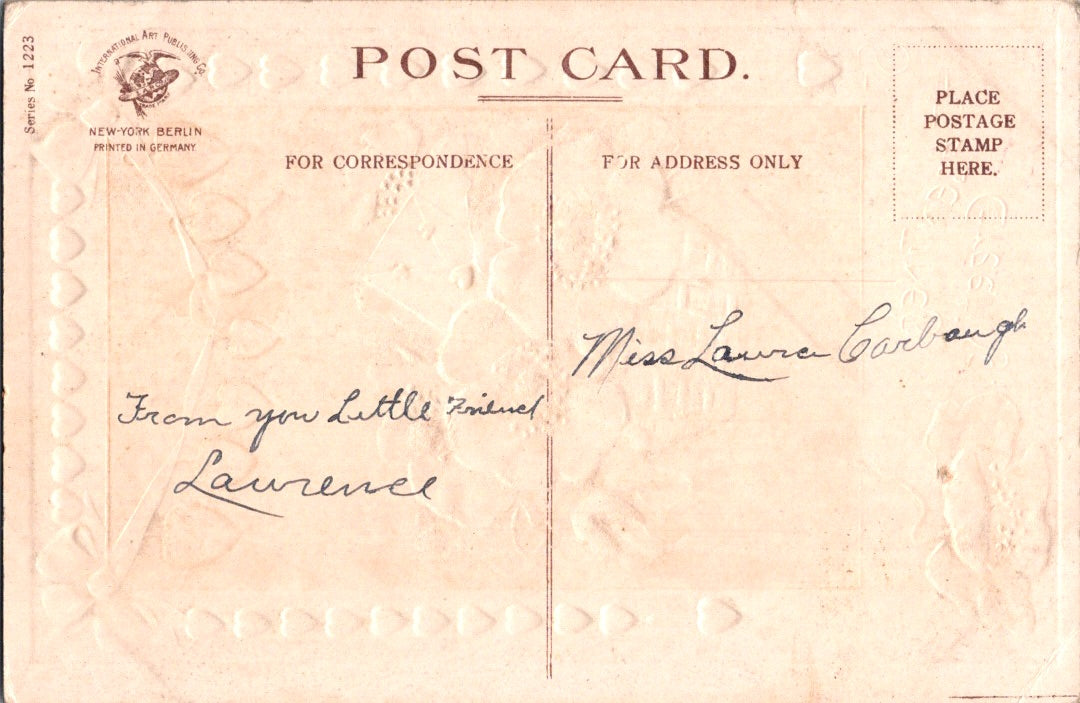 Series No 1223
INTERNATIONAL ART PUBLISHING CO.
NEW-YORK BERLIN
PRINTED IN GERMANY
POST CARD.
PLACE
POSTAGE
STAMP
HERE.
FOR CORRESPONDENCE
FOR ADDRESS ONLY
From you Little Friend
Lawrence
Miss Laura Carbaugh